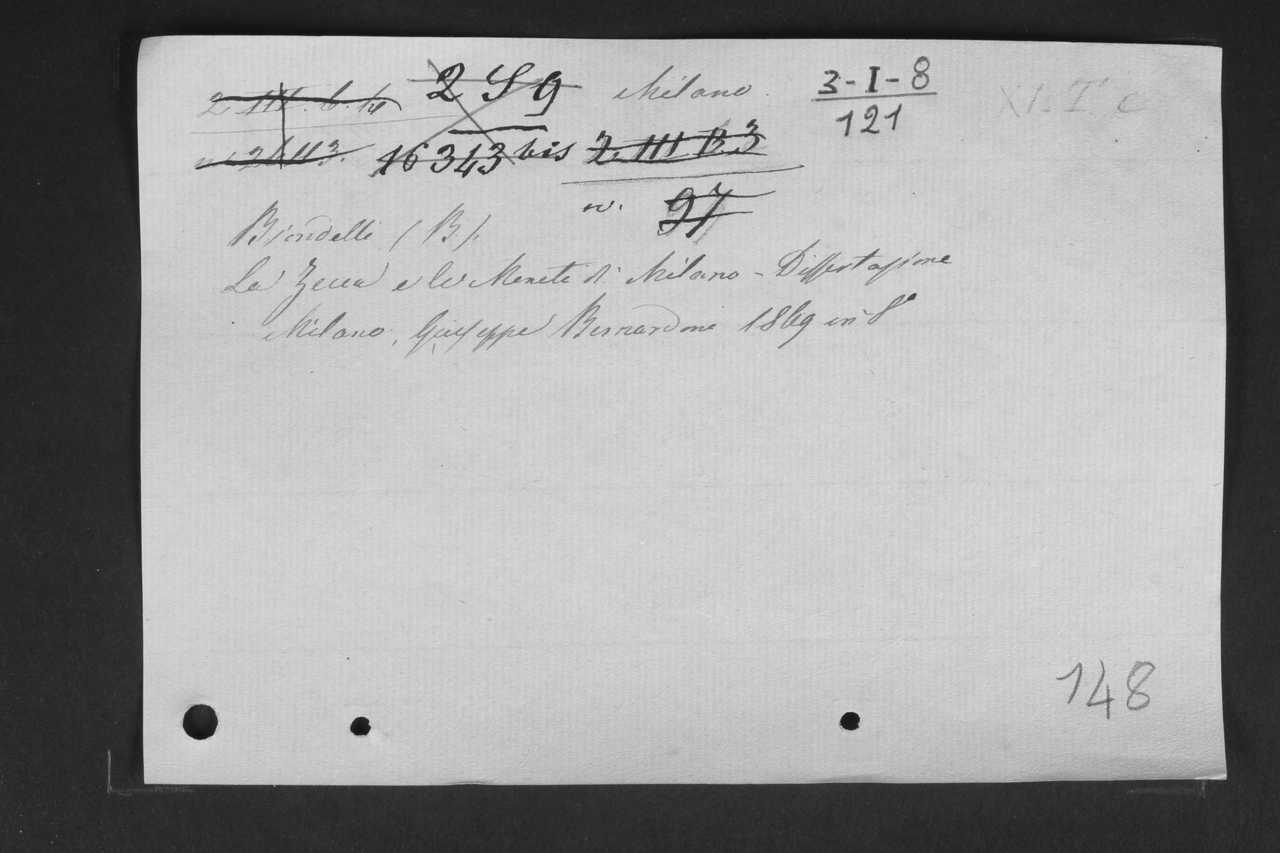 2 S 9 Milano. 3-I-8
121
16343 bis 2. III B. 3
n. 97
Biondelli (B.).
La Zecca e le Monete di Milano - Dissertazione
Milano, Giuseppe Bernardoni 1869 in 8°
148